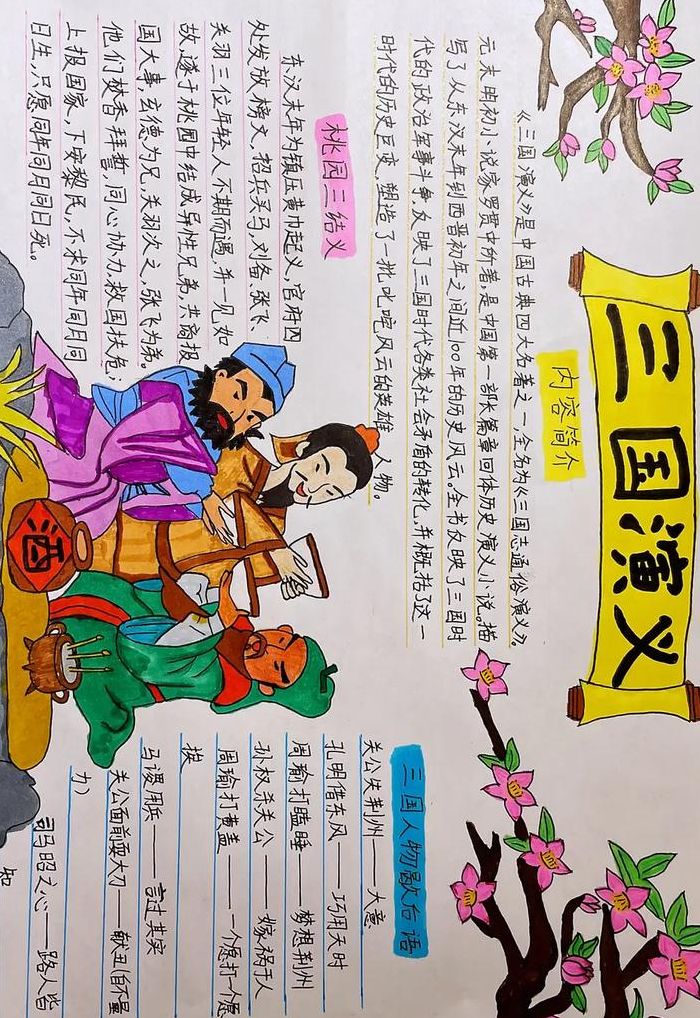 三国演义
内容简介
《三国演义》是中国古典四大名著之一,全名为《三国志通俗演义》。
元末明初小说家罗贯中所著,是中国第一部长篇章回体历史演义小说。描
写了从东汉末年到西晋初年之间近100年的历史风云。全书反映了三国时
代的政治军事斗争,反映了三国时代各类社会矛盾的转化,并概括了这一
时代的历史巨变,塑造了一批叱咤风云的英雄人物。
桃园三结义
东汉末年为镇压黄巾起义,官府四
处发放榜文,招兵买马,刘备、张飞、
关羽三位年轻人不期而遇,并一见如
故,遂于桃园中结成异性兄弟,共商报
国大事,玄德为兄,关羽次之,张飞为弟。
他们焚香拜誓,同心协力,救国扶危;
上报国家,下安黎民,不求同年同月同
日生,只愿同年同月同日死。
酒
三国人物歇后语
关公失荆州——大意
孔明借东风——巧用天时
周瑜打瞌睡——梦想荆州
孙权杀关公——嫁祸于人
周瑜打黄盖——一个愿打一个愿
挨
马谡用兵——言过其实
关公面前耍大刀——献丑(自不量
力)
司马昭之心——路人皆
知